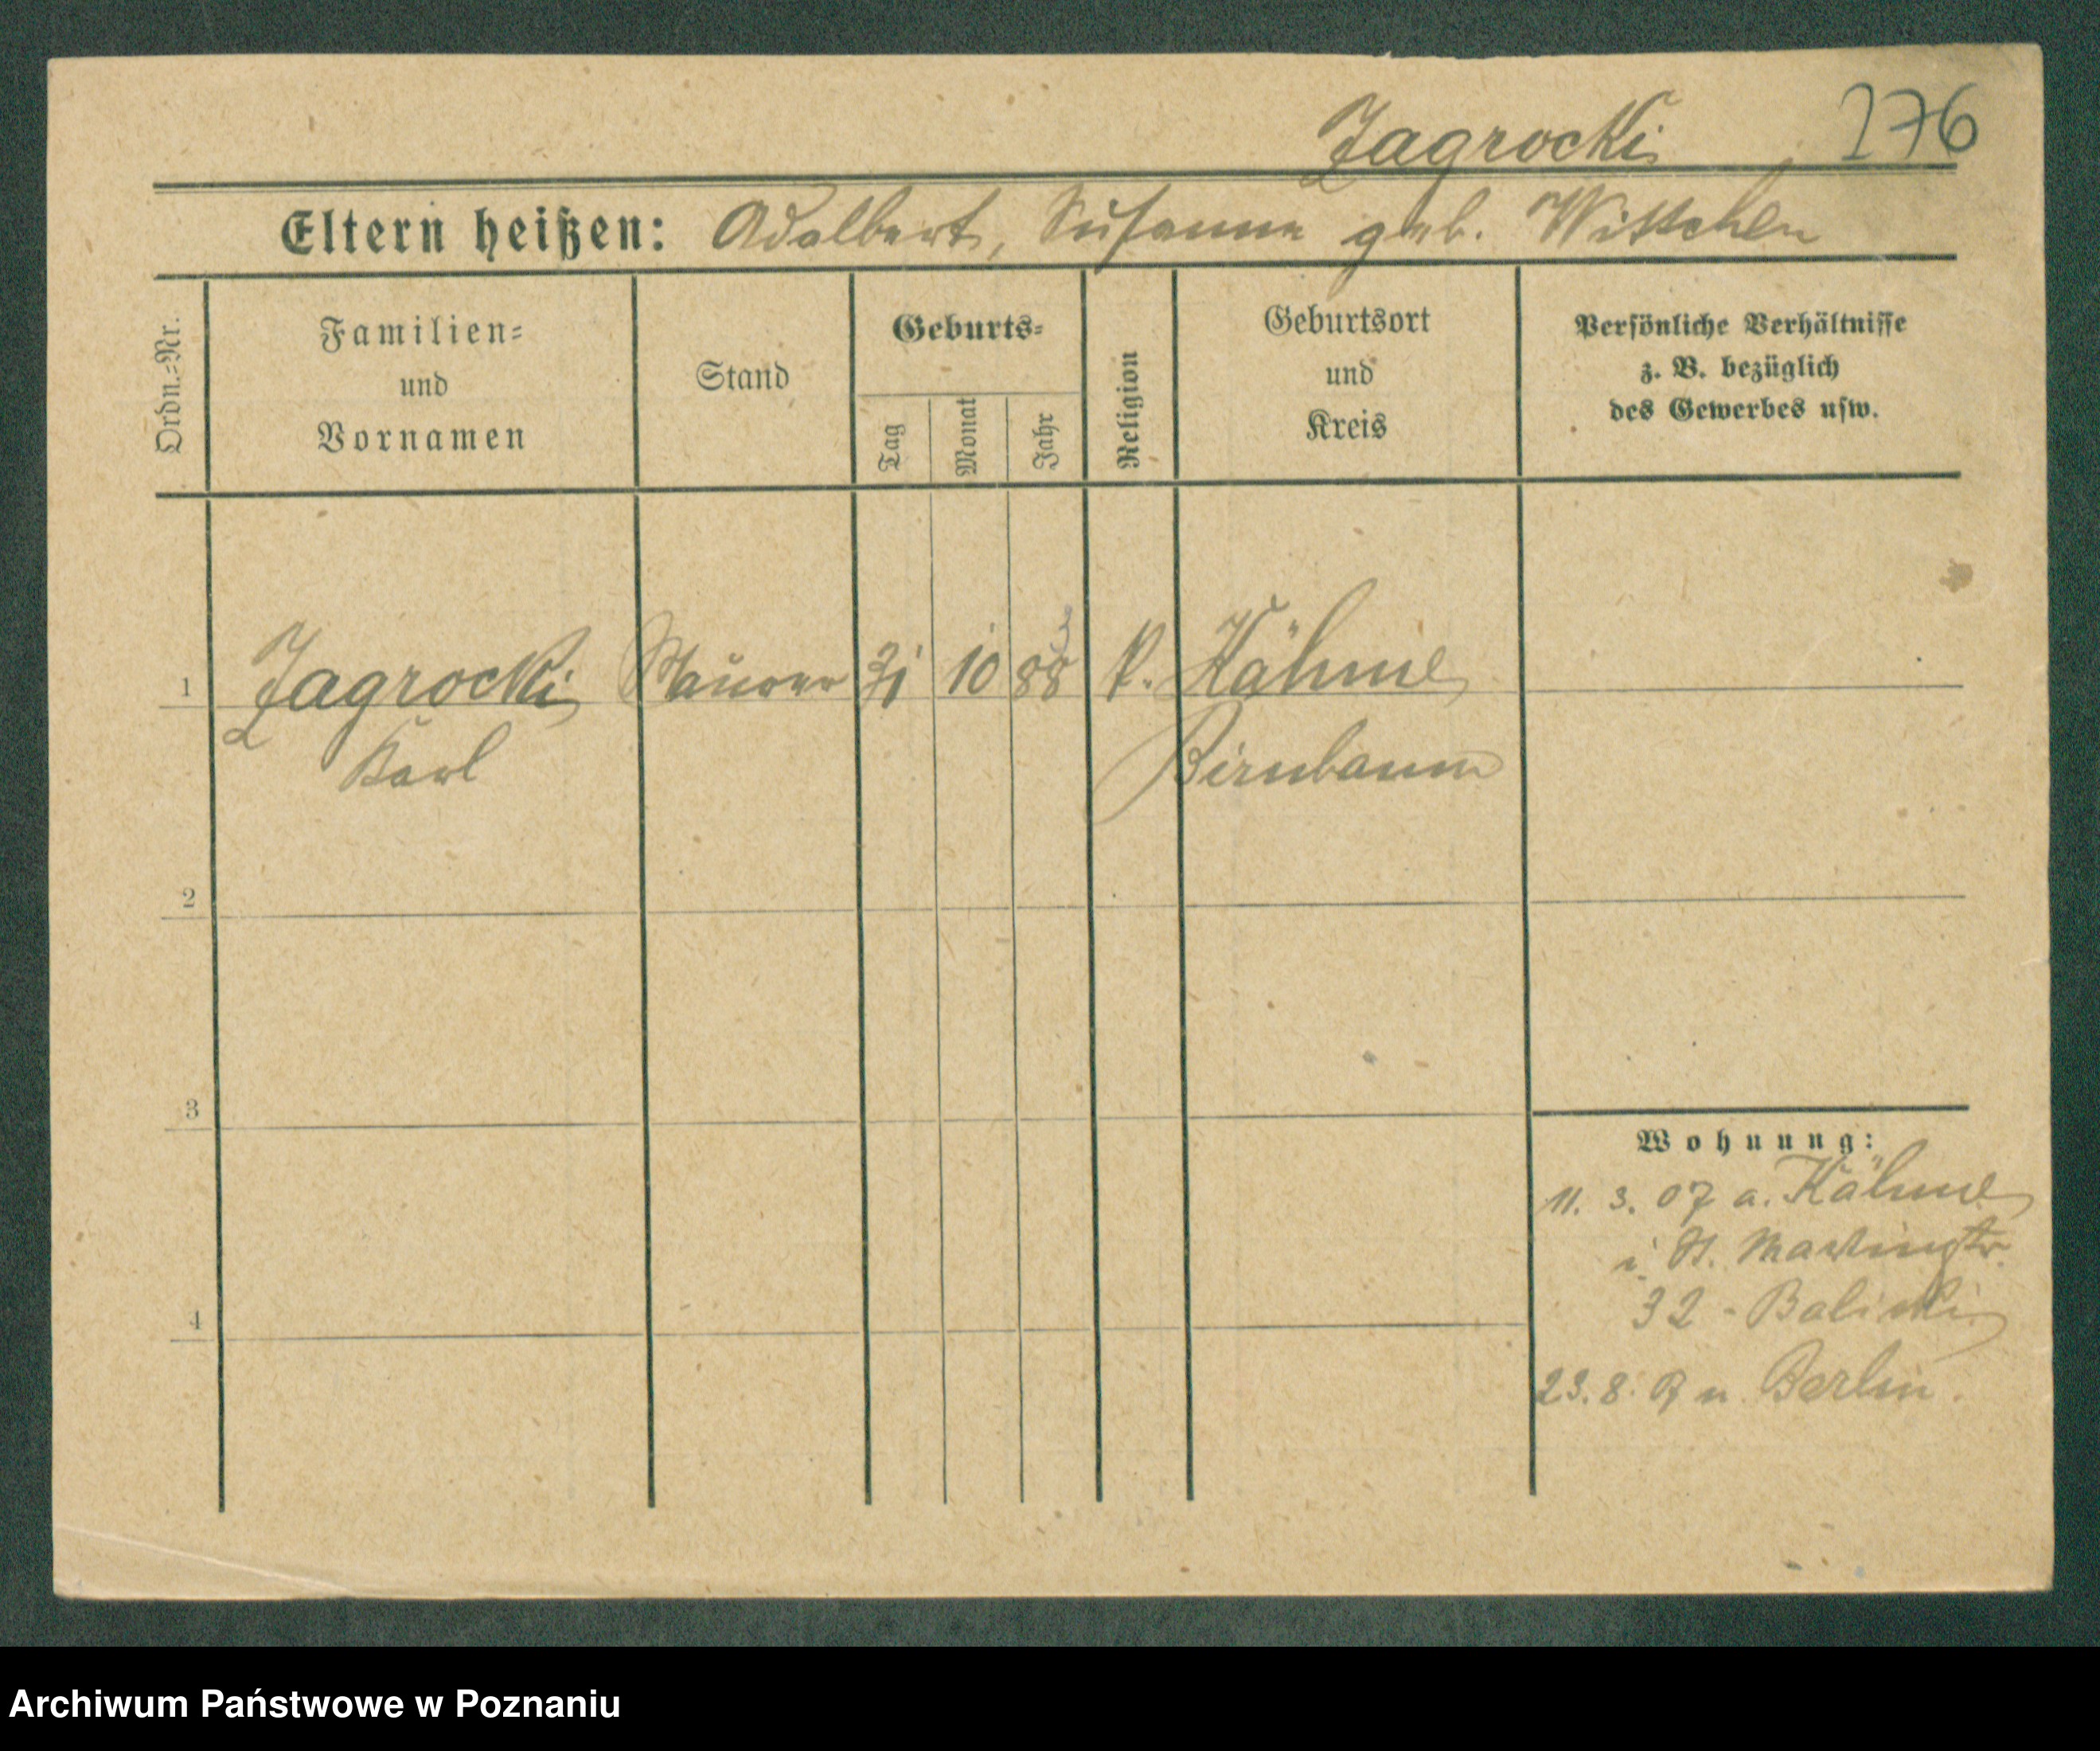 Zagrocki 276
Eltern heißen: Adalbert, Susanne geb. Wittchen
Ordn.=Nr.
Familien=
und
Vornamen
Stand
Geburts=
Tag
Monat
Jahr
Religion
Geburtsort
und
Kreis
Persönliche Verhältnisse
z. B. bezüglich
des Gewerbes usw.
1 Zagrocki Maurer 31 10 88 k. Kähme
Karl Birnbaum
2
3
4
Wohnung:
11. 3. 07 a. Kähme
i. St. Martinstr.
32 - Balinski
23. 8. n. Berlin.
Archiwum Państwowe w Poznaniu